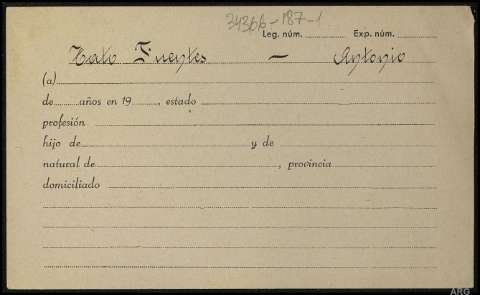 34366-187-1
Leg. núm. Exp. núm.
Hato Fuentes — Antonio
(a)
de años en 19 , estado
profesión
hijo de y de
natural de , provincia
domiciliado
ARG